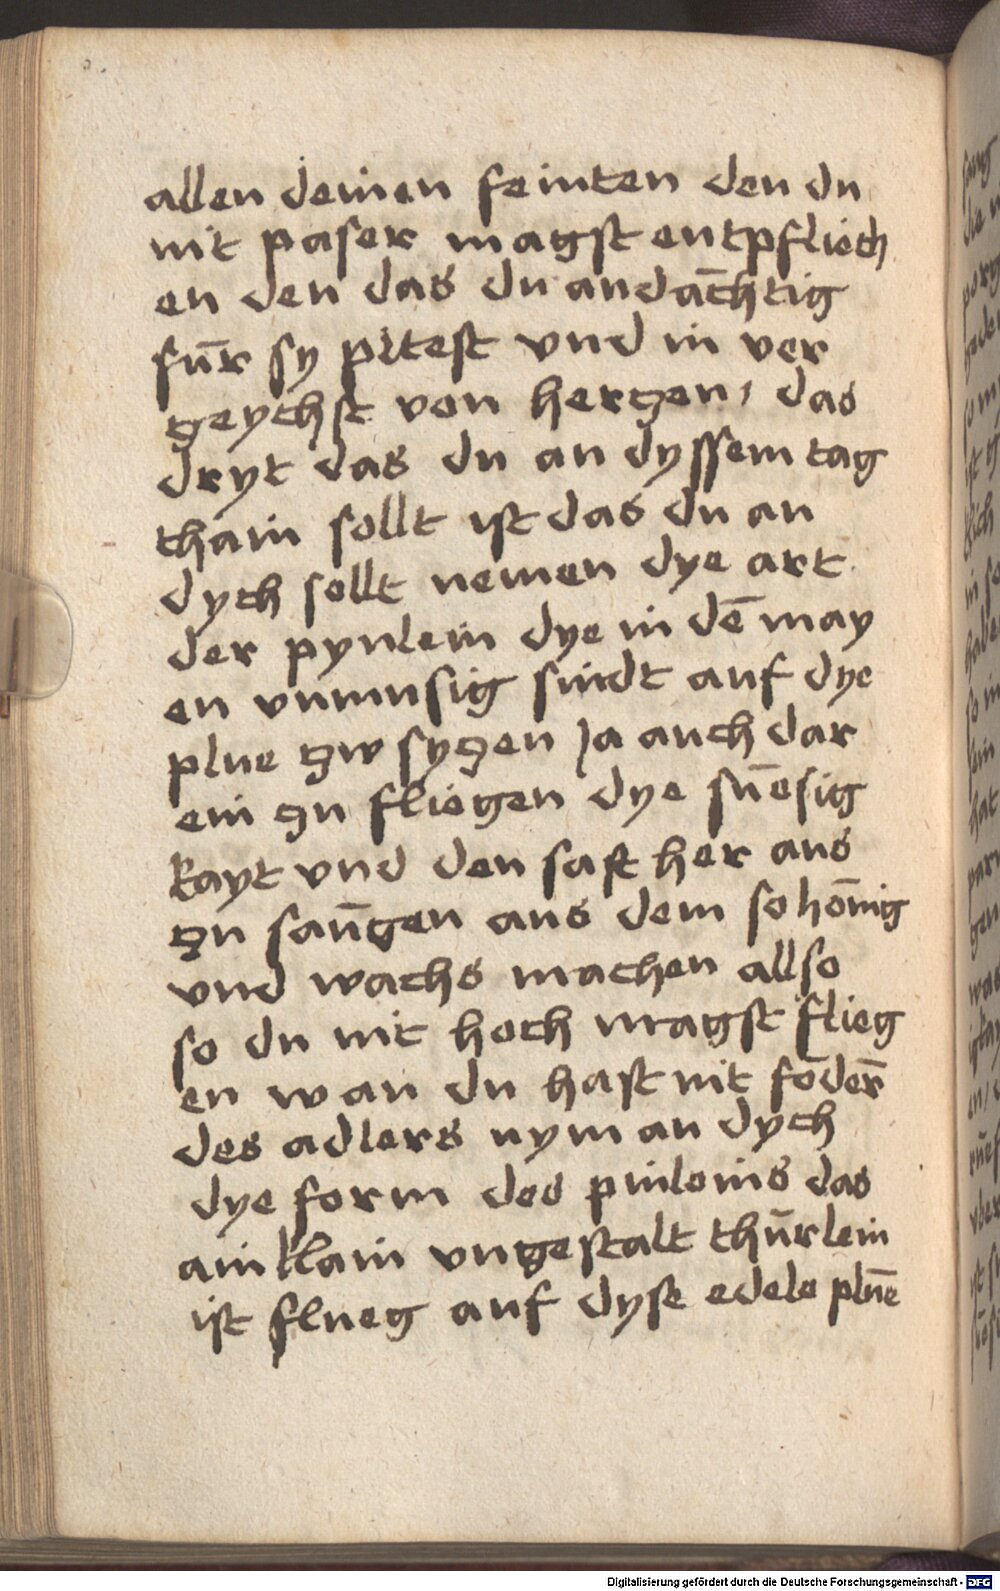 allen deinen feinten den du
nit paser magst entpfliech
en den das du andāchtig
fūr sy pitest vnd in ver
zeychst von herzen, das
dryt das du an dyssem tag
thain sollt ist das du an
dych sollt nemen dye art
der pynlein dye in dē may
en vnmusig sindt auf dye
plue zw syzen Ja auch dar
ein zu fliegen dye sūesig
kayt vnd den saft her aus
zu saūgen aus dem so hōnig
vnd wachs machen allso
so du nit hoch magst flieg
en wan du hast nit fōder̄
des adlers nym an dych
dye form des pinleins das
ain klain vngestalt thūrlein
ist flueg auf dyse edele plūe
Digitalisierung gefördert durch die Deutsche Forschungsgemeinschaft - DFG